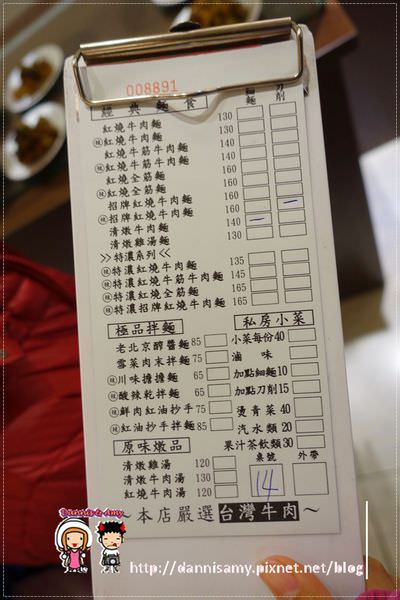 008891
經典麵食 細麵 刀削
紅燒牛肉麵 130
辣 紅燒牛肉麵 130
紅燒牛筋牛肉麵 160
辣 紅燒牛筋牛肉麵 160
紅燒全筋麵 160
辣 紅燒全筋麵 160
招牌紅燒牛肉麵 160
辣 招牌紅燒牛肉麵 160
清燉牛肉麵 140
清燉雞湯麵 130
>>特濃系列<<
辣 特濃紅燒牛肉麵 135
辣 特濃紅燒牛筋牛肉麵 145
辣 特濃紅燒全筋麵 165
辣 特濃招牌紅燒牛肉麵 165
極品拌麵
老北京醡醬麵 85
雪菜肉末拌麵 75
辣 川味擔擔麵 65
辣 酸辣乾拌麵 65
辣 鮮肉紅油抄手 75
辣 紅油抄手拌麵 85
原味燉品
清燉雞湯 120
清燉牛肉湯 130
紅燒牛肉湯 120
私房小菜
小菜每份 40
滷味
加點細麵 10
加點刀削 15
燙青菜 40
汽水類 20
果汁茶飲類 30
桌號 外帶
14
~本店嚴選台灣牛肉~
Dannis & Amy
http://dannisamy.pixnet.net/blog